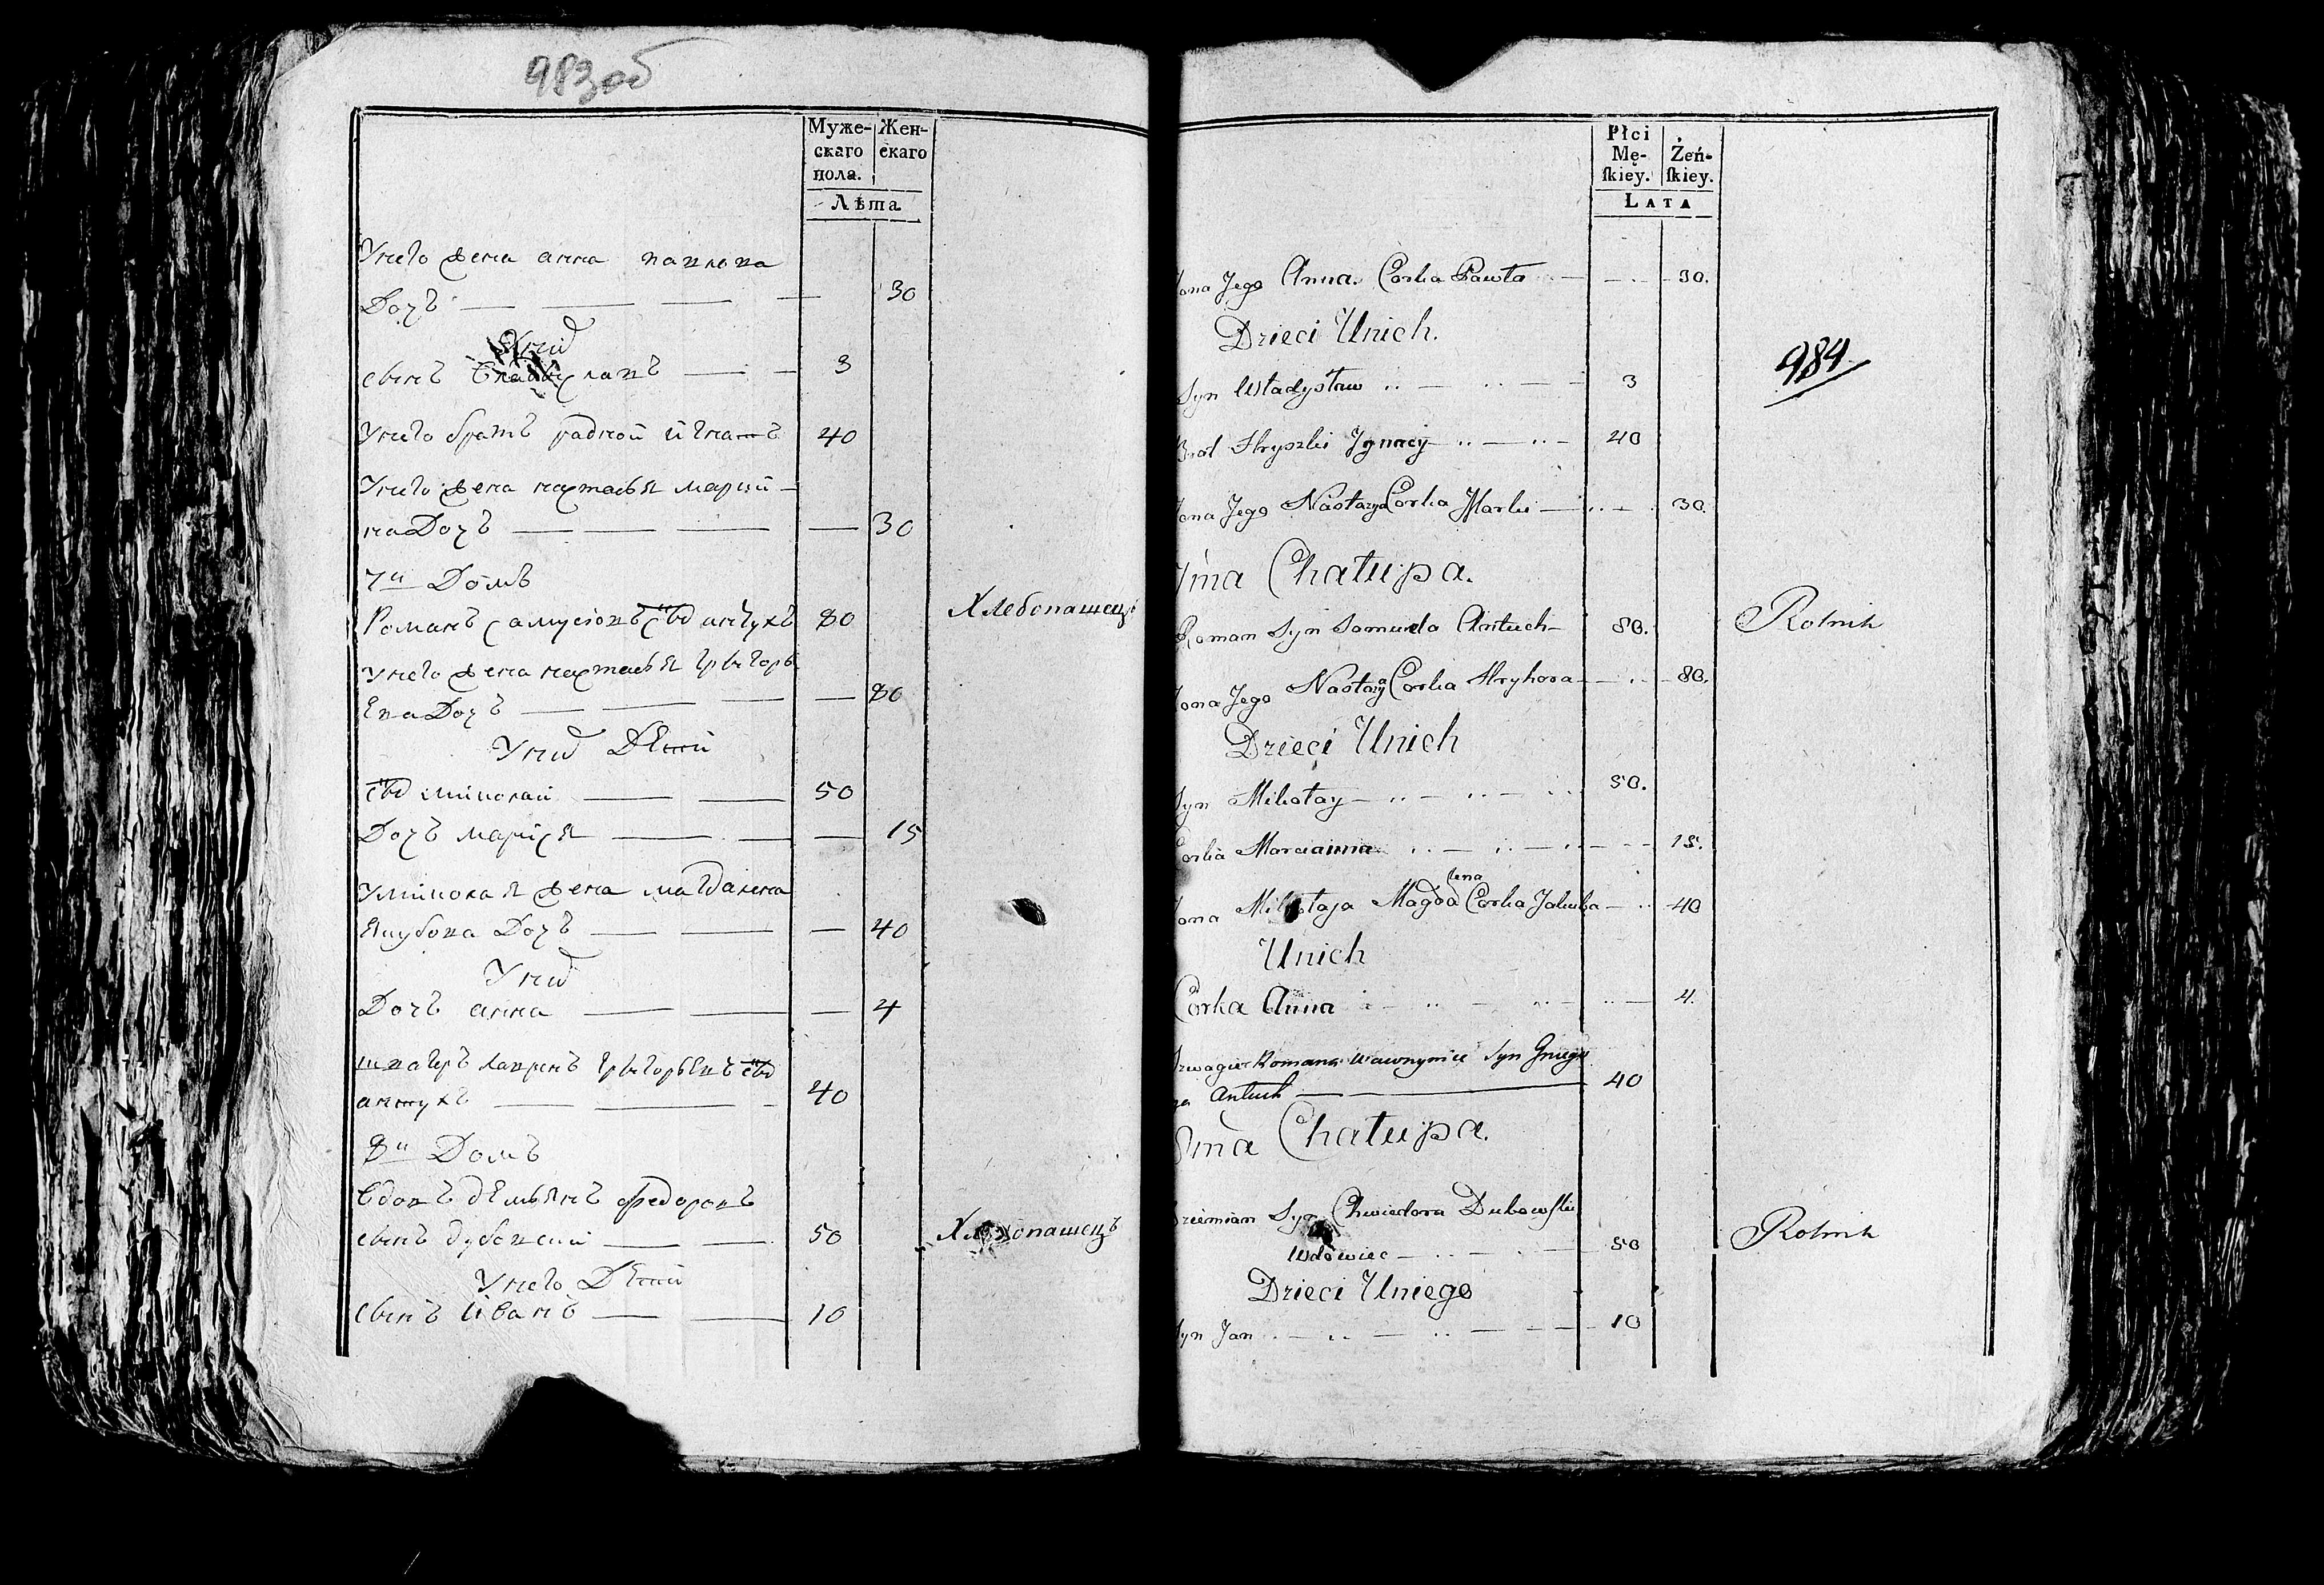 983об
Муже-
скаго
пола.
Жен-
скаго
Лѣта
Унего жена анна павлова
Дочъ 30
Унихъ
сынъ владиславъ 3
Унего братъ радной игнатъ 40
Унего жена настасья марций-
на Дочъ 30
7й Домъ
Романъ самусіовъ сынъ антухъ 80 Хлебопашецъ
Унего жена настасья грыгорь
ева Дочъ 80
Унихъ Дети
сынъ миколай 50
Дочъ марися 15
Умиколая жена магдалена
Якубова Дочъ 40
Унихъ
Дочъ анна 4
швагеръ лавренъ грыгорьевъ сынъ
антухъ 40
8й Домъ
вдовъ демьянъ федоровъ
сынъ дубовский 50 Хлебопашецъ
Унего Дети
сынъ иванъ 10
Płci
Mę-
ſkiey.
Żeń-
ſkiey.
LATA
984
ona Jego Anna Corka Pawła 30.
Dzieci Unich.
Syn Władysław 3
Brat Hryszki Jgnacy 40
ona Jego Nastazya Corka Marki 30.
7ma Chałupa.
Roman Syn Samuela Antuch 80. Rolnik
ona Jego Nastazya Corka Hryhora 80.
Dzieci Unich
Syn Mikołay 50.
Corka Marcianna 15.
ona Mikołaja Magdalena Corka Jakuba 40
Unich
Corka Anna 4.
Szwagier Romana Wawrzyniec Syn Grzego
rza Antuch 40
8ma Chałupa.
Dziemian Syn Chwiedora Dubowski
Wdowiec 50 Rolnik
Dzieci Uniego
Syn Jan 10